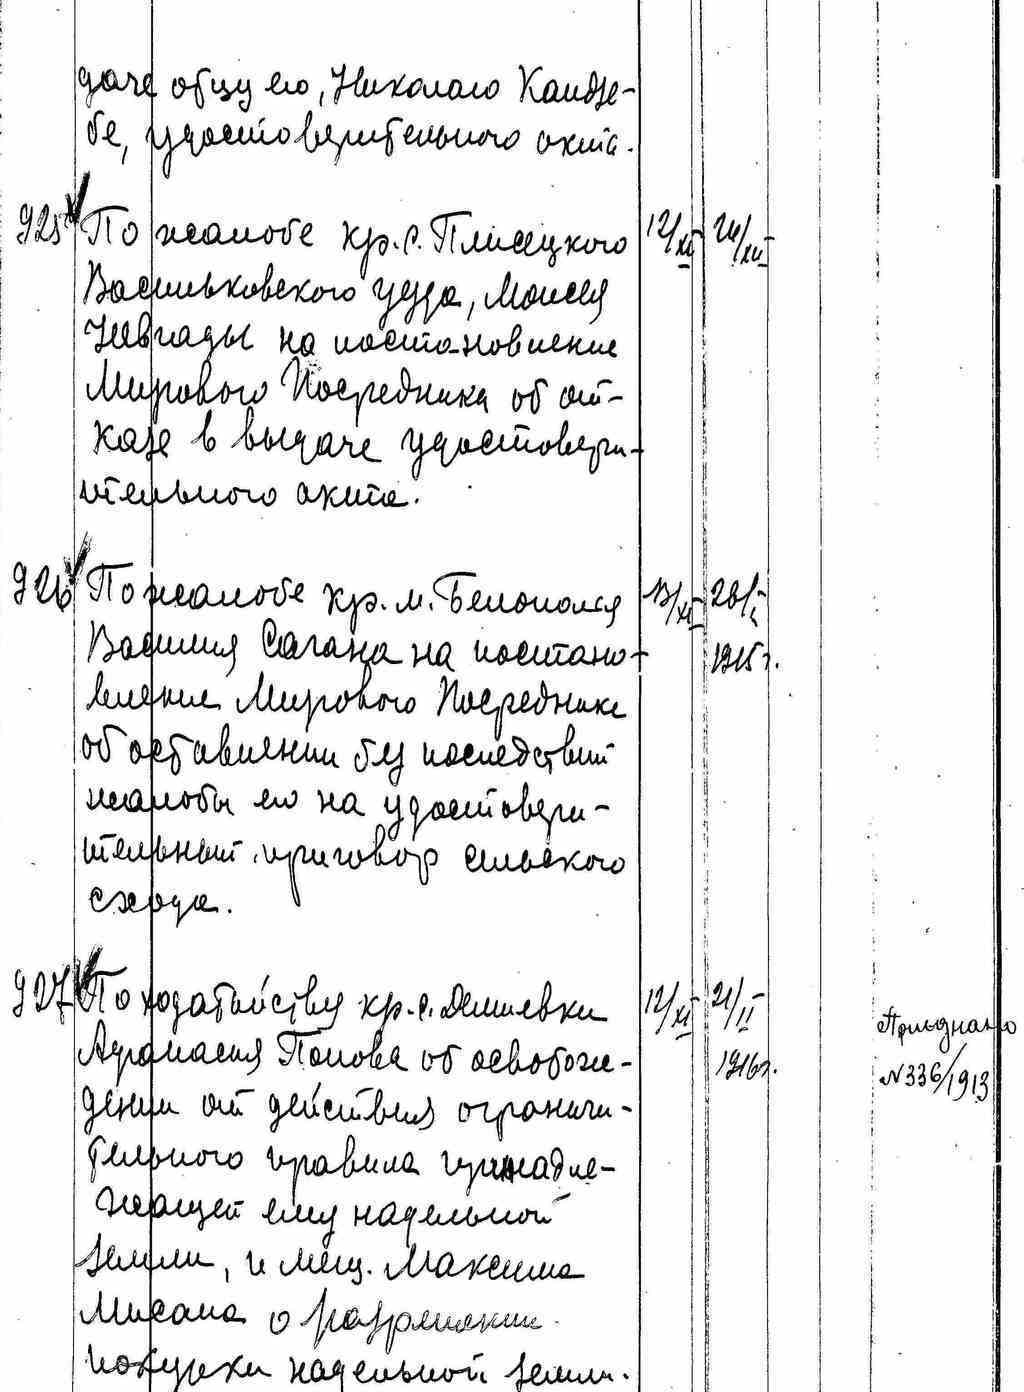 даче отцу его, Николаю Кандзе-
бе, удостоверительного акта.
925 По жалобе кр. с. Плисецкого 12/XI 24/XII
Васильковского уезда, Моисея
на постановление
Мирового Посредника об от-
казе в выдаче удостовери-
тельного акта.
926 По жалобе кр. м. Белополья 13/XI
Василия Сагана на постано- 1915 г.
вление Мирового Посредника
об оставлении без последствий
жалобы его на удостовери-
тельный приговор сельского
схода.
927 По ходатайству кр. с. Демиевки 12/XI 21/II
Афанасия Попова об освобож- 1916 г.
дении от действия ограничи-
тельного правила принадле-
жащей ему надельной
земли, и мещ. Максима
о разрешении
покупки надельной земли.
Приєднано
№ 336/1913